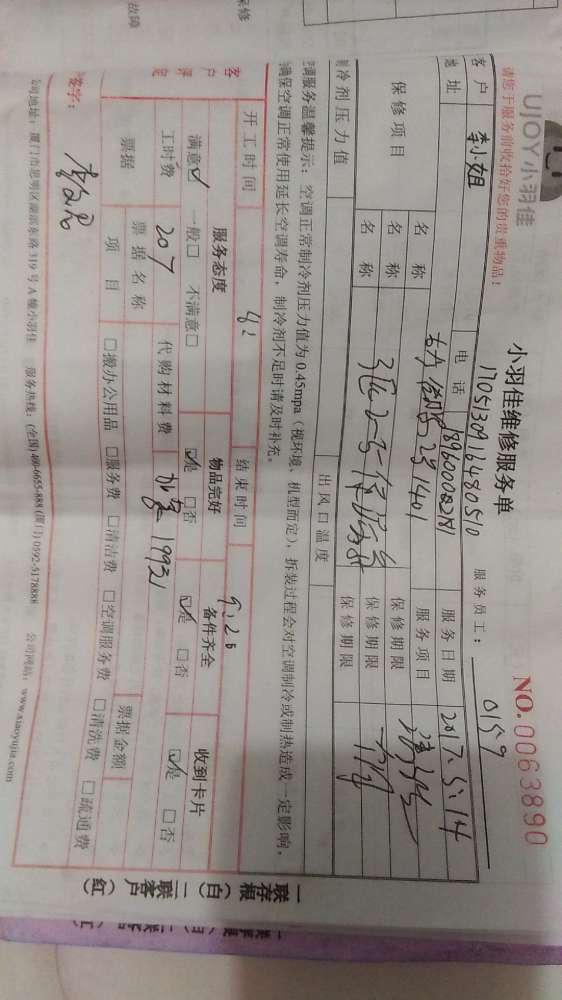 UJOY小羽佳
小羽佳维修服务单
NO.0063890
请您于服务前收拾好您的贵重物品!
17051309116480510
服务员工: 0159
客户 李小姐 电话 18960002781 服务日期 2017.5.14
地址 1401 服务项目 清洗
保修项目 名称 保修期限
名称 保修期限
名称 保修期限
制冷剂压力值 出风口温度
空调服务温馨提示:空调正常制冷剂压力值为0.45mpa(视环境、机型而定),拆装过程会对空调制冷或制热造成一定影响,
确保空调正常使用延长空调寿命,制冷剂不足时请及时补充。
开工时间 结束时间 9:20
客户评定 服务态度 物品完好 备件齐全 收到卡片
满意☑ 一般□ 不满意□ ☑是 □否 ☑是 □否 ☑是 □否
工时费 207 代购材料费
票据 票据名称 票据金额
项目 □搬办公用品 □服务费 □清洁费 □空调服务费 □清洗费 □疏通费
签字:
公司地址:厦门市思明区湖滨东路319号A幢小羽佳 服务热线:(全国)400-6655-888(厦门)0592-5178888 公司网站:www.xiaoyujia.com
一联存根(白)二联客户(红)
保修
故障